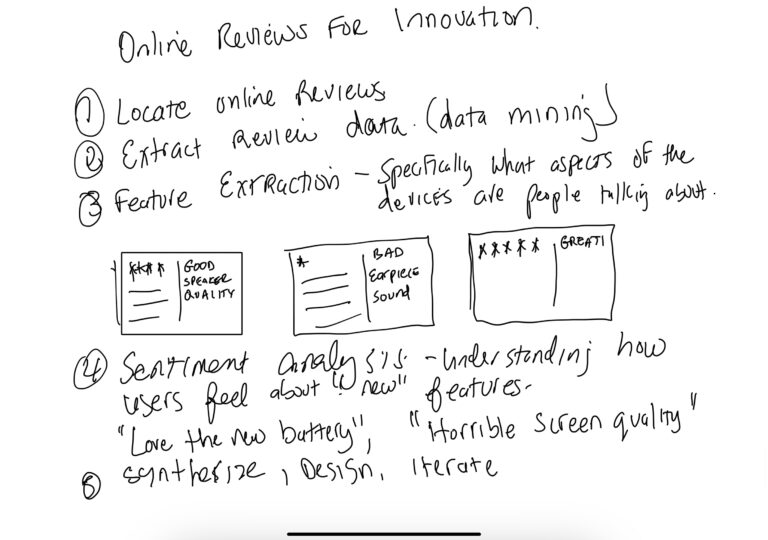 Online Reviews For Innovation.
① Locate online Reviews
② Extract Review data. (data mining)
③ Feature Extraction - Specifically what aspects of the
devices are people talking about.
**** GOOD
SPEAKER
QUALITY
* BAD
Earpiece
Sound
***** GREAT!
④ Sentiment analysis. - Understanding how
users feel about "new" features.
"Love the new battery", "Horrible screen quality"
⑤ synthesize, Design, iterate